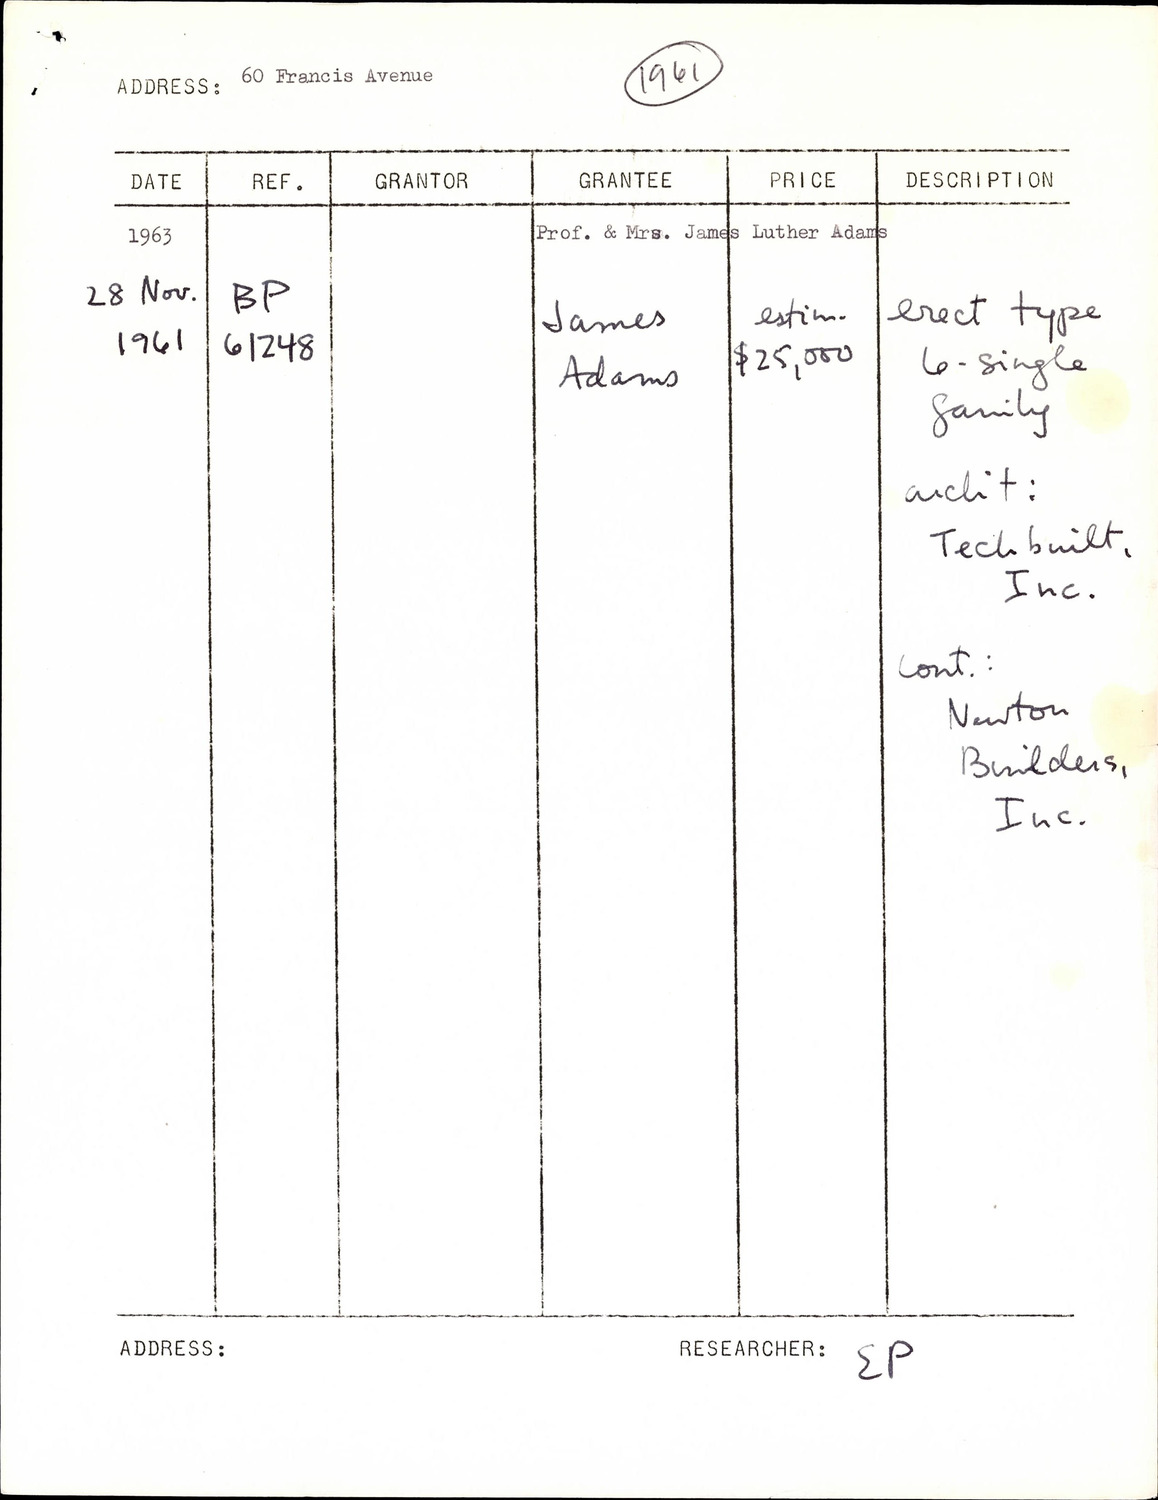 ADDRESS: 60 Francis Avenue 1961
DATE REF. GRANTOR GRANTEE PRICE DESCRIPTION
1963 Prof. & Mrs. James Luther Adams
28 Nov. 1961
BP 61248
James
Adams
estim.
$25,000
erect type
6-single
family
archit:
Techbuilt,
Inc.
cont.:
Newton
Builders,
Inc.
ADDRESS: RESEARCHER: EP